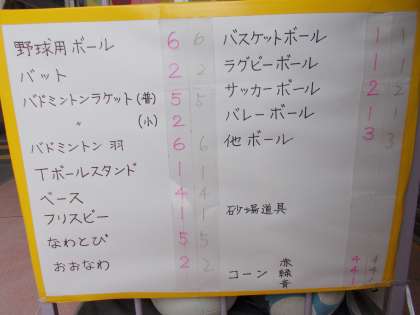 野球用ボール 6 6
バット 2 2
バドミントンラケット(普) 5 5
〃 (小) 2
バドミントン 羽 6 6
Tボールスタンド 1 1
ベース 4 4
フリスビー 1 1
なわとび 5 5
おおなわ 2 2
バスケットボール 1 1
ラグビーボール 1 1
サッカーボール 2 2
バレーボール 1 1
他ボール 3 3
砂場道具
コーン 赤 4 4
緑 4 4
青 1